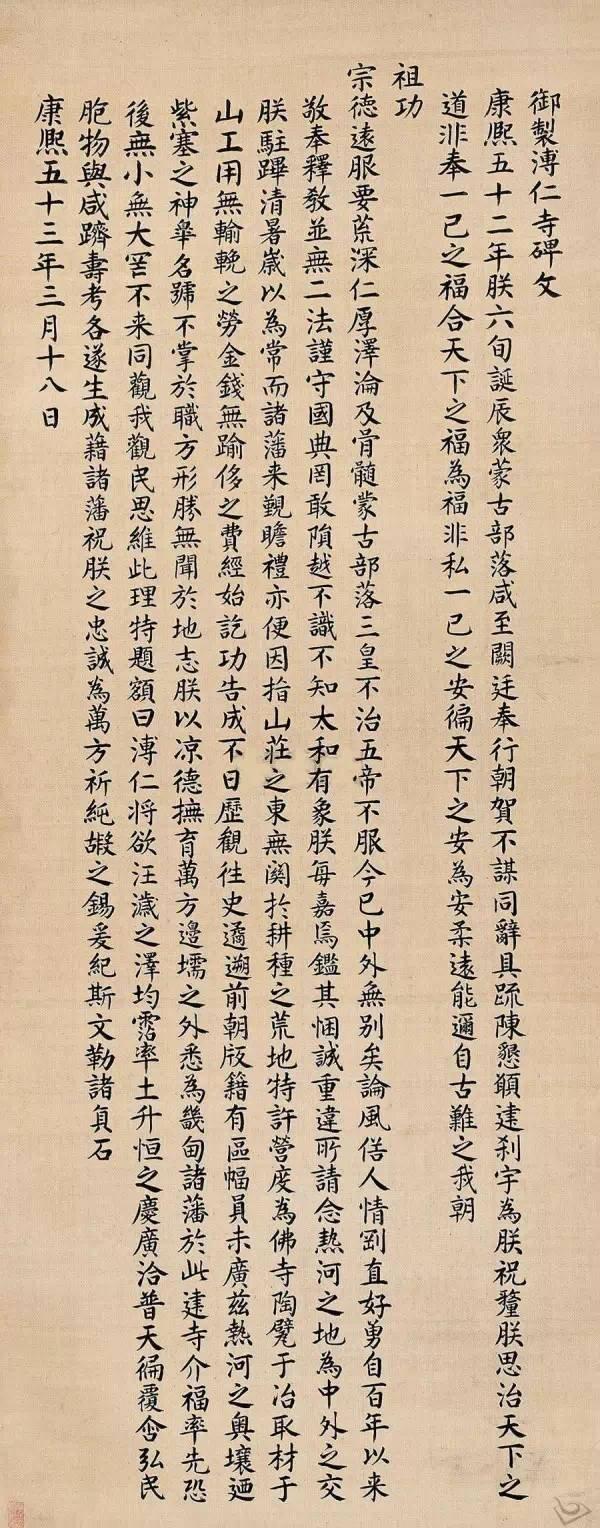 御製溥仁寺碑文
康熙五十二年朕六旬誕辰衆蒙古部落咸至闕廷奉行朝賀不謀同辭具疏陳懇願建刹宇為朕祝釐朕思治天下之
道非奉一己之福合天下之福為福非私一己之安徧天下之安為安柔遠能邇自古難之我朝
祖功
宗德遠服要荒深仁厚澤淪及骨髓蒙古部落三皇不治五帝不服今已中外無別矣論風俗人情剛直好勇自百年以来
敬奉釋教並無二法謹守國典罔敢隕越不識不知太和有象朕每嘉焉鑑其悃誠重違所請念熱河之地為中外之交
朕駐蹕清暑歲以為常而諸藩来覲瞻禮亦便因指山莊之東無関於耕種之荒地特許營度為佛寺陶甓于冶取材于
山工用無輸輓之勞金錢無踰侈之費經始訖功告成不日歷觀往史遹遡前朝版籍有區幅員未廣茲熱河之奥壤迺
紫塞之神皋名號不掌於職方形勝無聞於地志朕以凉德撫育萬方邊壖之外悉為畿甸諸藩於此建寺介福率先恐
後無小無大罔不来同觀我觀民思維此理特題額曰溥仁将欲汪濊之澤均霑率土升恒之慶廣洽普天徧覆含弘民
胞物與咸躋壽考各遂生成藉諸藩祝朕之忠誠為萬方祈純嘏之錫爰紀斯文勒諸貞石
康熙五十三年三月十八日